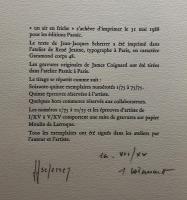 « un air en friche » s'achève d'imprimer le 31 mai 1988
pour les éditions Pasnic.
Le texte de Jean-Jacques Scherrer a été imprimé dans
l'atelier de René Jeanne, typographe à Paris, en caractère
Garamond corps 48.
Les gravures originales de James Coignard ont été tirées
dans l'atelier Pasnic à Paris.
Le tirage se répartit comme suit :
Soixante-quinze exemplaires numérotés 1/75 à 75/75.
Quinze épreuves réservées à l'artiste.
Quelques hors commerce réservés aux collaborateurs.
Les numéros 1/75 à 10/75 et les épreuves d'artiste de
I/XV à V/XV comportent une suite de gravures sur papier
Moulin de Larroque.
Tous les exemplaires ont été signés dans les ateliers par
l'auteur et l'artiste.
ea. VII/XV